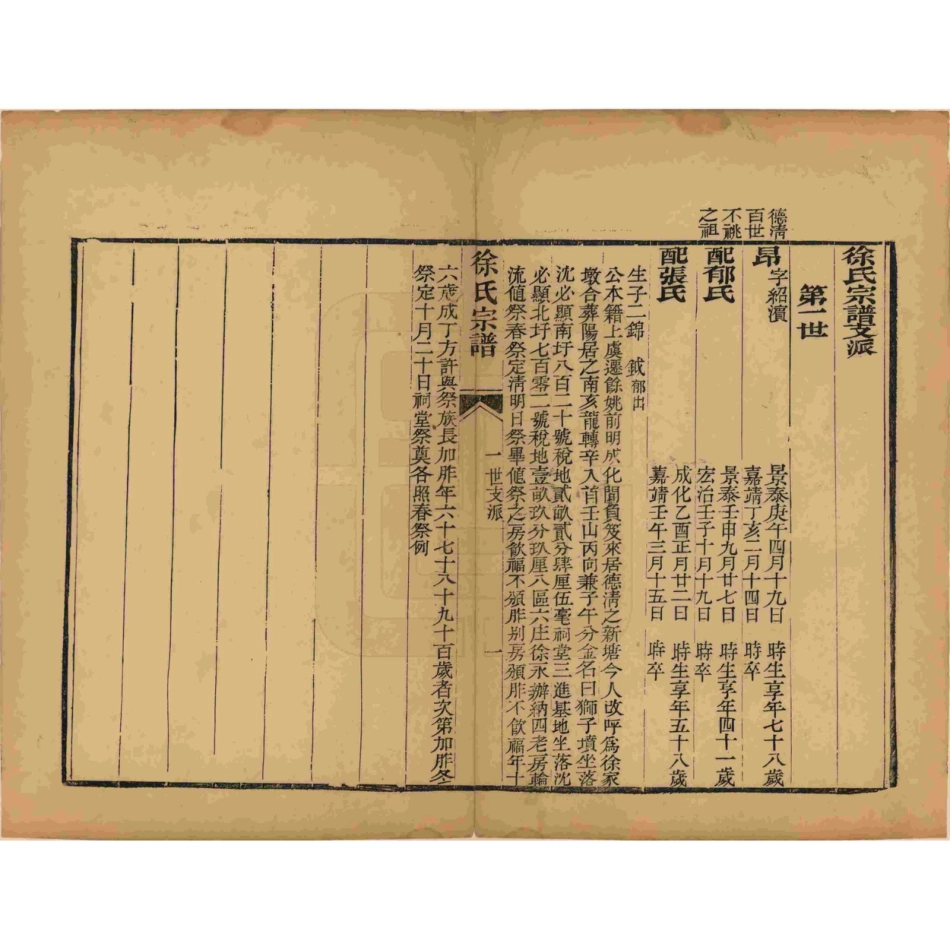 徐氏宗譜支派
第一世
德清
百世
不祧
之祖
昂 字紹濱 景泰庚午四月十九日 時生享年七十八歲
嘉靖丁亥二月十四日 時卒
配郁氏 景泰壬申九月廿七日 時生享年四十一歲
宏治壬子十月十九日 時卒
配張氏 成化乙酉正月廿二日 時生享年五十八歲
嘉靖壬午三月十五日 時卒
生子二錦 鉞郁出
公本籍上虞遷餘姚前明成化間負笈來居德清之新塘今人改呼爲徐家
墩合葬陽居之南亥龍轉辛入首壬山丙向兼子午分金名曰獅子墳坐落
沈必顯南圩八百二十號稅地貳畝貳分肆厘伍毫祠堂三進基地坐落沈
必顯北圩七百零二號稅地壹畝玖分玖厘八區六庄徐永辦納四老房輪
流值祭春祭定清明日祭畢值祭之房飲福不頒胙别房頒胙不飲福年十
徐氏宗譜 一世支派 一
六歲成丁方許與祭族長加胙年六十七十八十九十百歲者次第加胙冬
祭定十月二十日祠堂祭奠各照春祭例